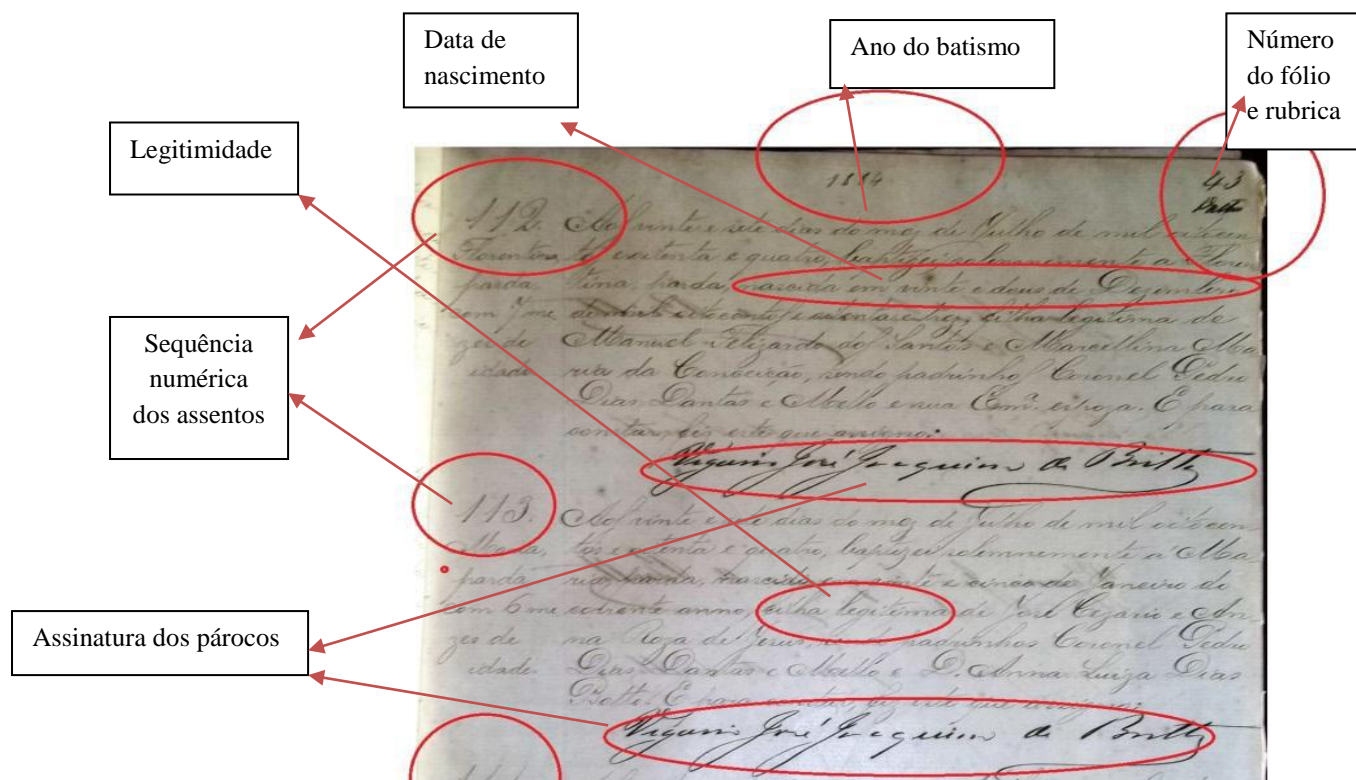 Data de
nascimento
Ano do batismo
Número
do fólio
e rubrica
Legitimidade
Sequência
numérica
dos assentos
Assinatura dos párocos
1884
43
Britto
112. Aos vinte e sete dias do mez de Julho de mil oitocen
Florentina, tos e oitenta e quatro, baptizei solemnemente a Floren
parda tina, parda, nascida em vinte e dous de Dezembro
com 7 me de mil oitocentos e oitenta e tres, filha legitima de
zes de Manuel Felizardo dos Santos e Marcellina Ma
idade ria da Conceição, sendo padrinhos Coronel Pedro
Dias Dantas e Mello e sua Emª. espoza. E para
constar, fiz este que assigno.
Vigario José Joaquim de Britto
113. Aos vinte e sete dias do mez de Julho de mil oitocen
Maria, tos e oitenta e quatro, baptizei solemnemente a Ma
parda ria, parda, nascida em vinte e cinco de Janeiro do
com 6 me corrente anno, filha legitima de José Cezario e An
zes de na Roza de Jesus, padrinhos Coronel Pedro
idade. Dias Dantas e Mello e D. Anna Luiza Dias
Botto. E para constar, fiz este que assigno.
Vigario José Joaquim de Britto